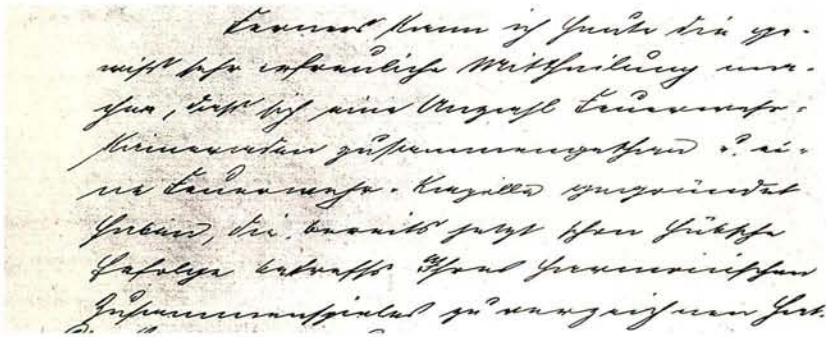 Ferners kann ich heute die ge-
wiß sehr erfreuliche Mittheilung ma-
chen, daß sich eine Anzahl Feuerwehr-
Kameraden zusammengethan u. ei-
ne Feuerwehr-Kapelle gegründet
haben, die bereits jetzt schon hübsche
Erfolge betreffs Ihres harmonischen
Zusammenspieles zu verzeichnen hat.